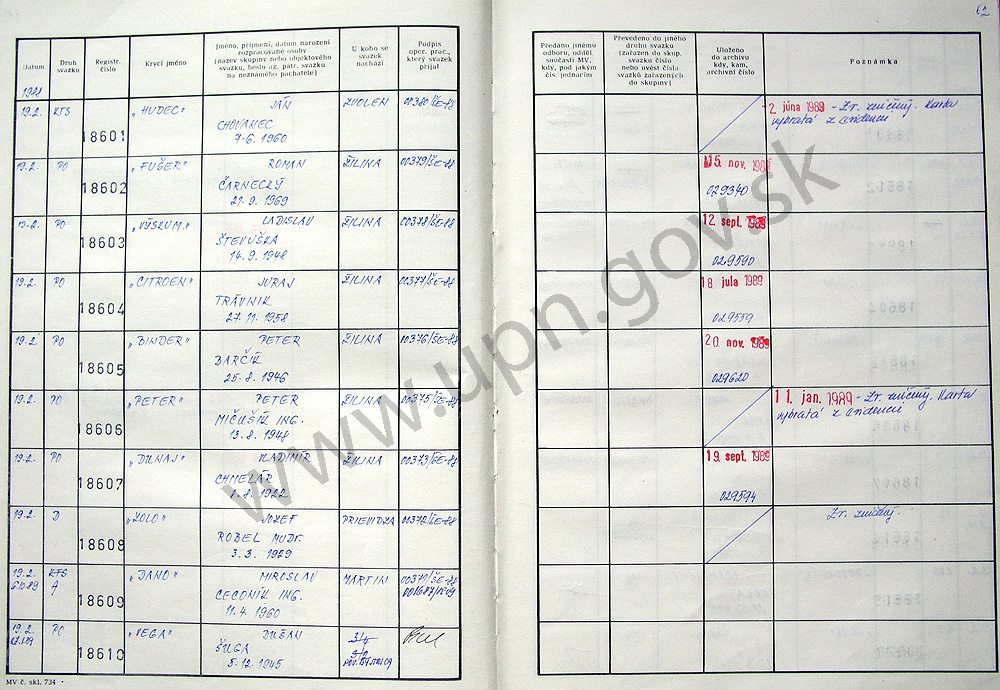 62
Datum
Druh svazku
Registr. číslo
Krycí jméno
Jméno, příjmení, datum narození
rozpracované osoby
(název skupiny nebo objektového
svazku, heslo ag. pátr. svazku
na neznámého pachatele)
U koho se
svazek
nachází
Podpis
oper. prac.,
který svazek
přijal
Předáno jinému
odboru, odděl.
součásti MV,
kdy, pod jakým
čís. jednacím
Převedeno do jiného
druhu svazku
(zařazen do skup.
svazku číslo
nebo uvést čísla
svazků zařazených
do skupiny)
Uloženo
do archivu
kdy, kam,
archivní číslo
Poznámka
1988
19.2. KTS 18601 "HUDEC" JÁN ZVOLEN 00380/ŠE-88
CHOVANEC
7.6. 1960
2. júna 1989 - Zv. zničený. Karta
vybratá z evidencii
19.2. PO 18602 "FUŠER" ROMAN ŽILINA 00379/ŠE-88
ČARNECKÝ
21.9. 1969
15. nov. 1989
029340
19.2. PO 18603 "VÝSKUM" LADISLAV ŽILINA 00378/ŠE-88
ŠTEVUŠKA
14.9. 1948
12. sept. 1989
029590
19.2. PO 18604 "CITROEN" JURAJ ŽILINA 00377/ŠE-88
TRÁVNIK
27.11. 1958
18. júla 1989
029559
19.2. PO 18605 "BINDER" PETER ŽILINA 00376/ŠE-88
BARČÍK
25.8. 1946
20. nov. 1989
029620
19.2. PO 18606 "PETER" PETER ŽILINA 00375/ŠE-88
MIČUŠÍK ING.
13.8. 1948
11. jan. 1989 - Zv. zničený. Karta
vybratá z evidencii
19.2. PO 18607 "DUNAJ" VLADIMÍR ŽILINA 00373/ŠE-88
CHMELÁŘ
1922
19. sept. 1989
029594
19.2. D 18608 "LOLO" JOZEF PRIEVIDZA 00372/ŠE-88
ROBEL MUDr.
3.3. 1929
Zv. zničený.
19.2. KTS 18609 "DANO" MIROSLAV MARTIN 00370/ŠE-88
A
CECONÍK ING.
11.4. 1960
19.2. PO 18610 "VEGA" DUŠAN
ŠUGA
5.12. 1945
MV č. skl. 734
www.upn.gov.sk